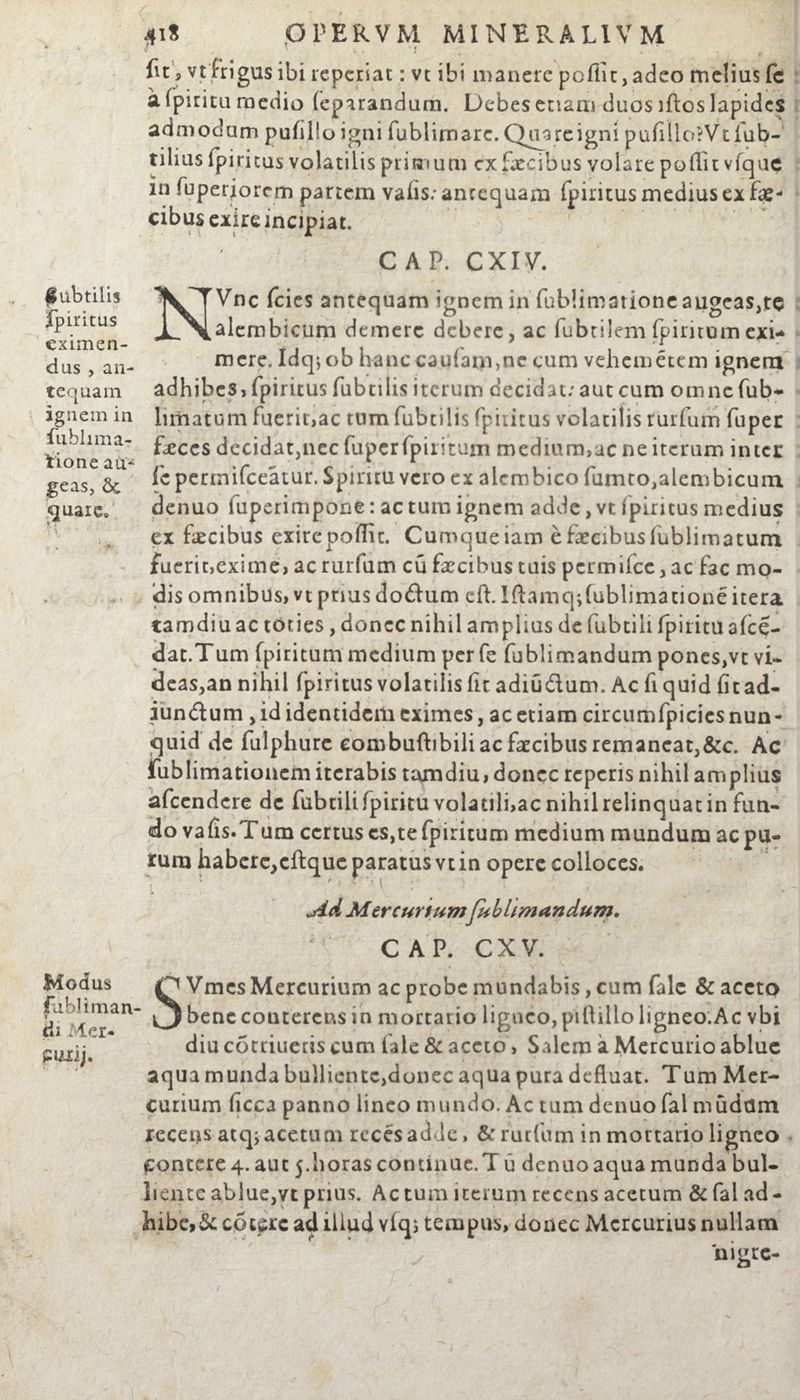 418 OPERVM MINERALIVM
ſit, vt frigus ibi reperiat : vt ibi manere poſſit, adeo melius ſe
à ſpiritu medio ſeparandum. Debes etiam duos iſtos lapides
admodum puſillo igni ſublimare. Quare igni puſillo? Vt ſub-
tilius ſpiritus volatilis primum ex fæcibus volare poſſit vſque
in ſuperiorem partem vaſis: antequam ſpiritus medius ex fæ-
cibus exire incipiat.
CAP. CXIV.
Subtilis
ſpiritus
eximen-
dus, an-
tequam
ignem in
ſublima-
tione au-
geas, &
quare.
NVnc ſcies antequam ignem in ſublimatione augeas, te
alembicum demere debere, ac ſubtilem ſpiritum exi-
mere. Idq; ob hanc cauſam, ne cum vehemētem ignem
adhibes, ſpiritus ſubtilis iterum decidat: aut cum omne ſub-
limatum fuerit, ac tum ſubtilis ſpiritus volatilis rurſum ſuper
fæces decidat, nec ſuper ſpiritum medium, ac ne iterum inter
ſe permiſceātur. Spiritu vero ex alembico ſumto, alembicum
denuo ſuperimpone: ac tum ignem adde, vt ſpiritus medius
ex fæcibus exire poſſit. Cumque iam è fæcibus ſublimatum
fuerit, exime, ac rurſum cū fæcibus tuis permiſce, ac fac mo-
dis omnibus, vt prius doctum eſt. Iſtamq; ſublimationē itera
tamdiu ac toties, donec nihil amplius de ſubtili ſpiritu aſcē-
dat. Tum ſpiritum medium per ſe ſublimandum pones, vt vi-
deas, an nihil ſpiritus volatilis ſit adiūctum. Ac ſi quid ſit ad-
iunctum, id identidem eximes, ac etiam circumſpicies nun-
quid de ſulphure combuſtibili ac fæcibus remaneat, &c. Ac
ſublimationem iterabis tamdiu, donec reperis nihil amplius
aſcendere de ſubtili ſpiritu volatili, ac nihil relinquat in fun-
do vaſis. Tum certus es, te ſpiritum medium mundum ac pu-
rum habere, eſtque paratus vt in opere colloces.
Ad Mercurium ſublimandum.
CAP. CXV.
Modus
ſubliman-
di Mer-
curij.
SVmes Mercurium ac probe mundabis, cum ſale & aceto
bene conterens in mortario ligneo, piſtillo ligneo. Ac vbi
diu cōtriueris cum ſale & aceto, Salem à Mercurio ablue
aqua munda bulliente, donec aqua pura defluat. Tum Mer-
curium ſicca panno lineo mundo. Ac tum denuo ſal mūdum
recens atq; acetum recēs adde, & rurſum in mortario ligneo
contere 4. aut 5. horas continue. Tū denuo aqua munda bul-
liente ablue, vt prius. Ac tum iterum recens acetum & ſal ad-
hibe, & cōtere ad illud vſq; tempus, donec Mercurius nullam
nigre-